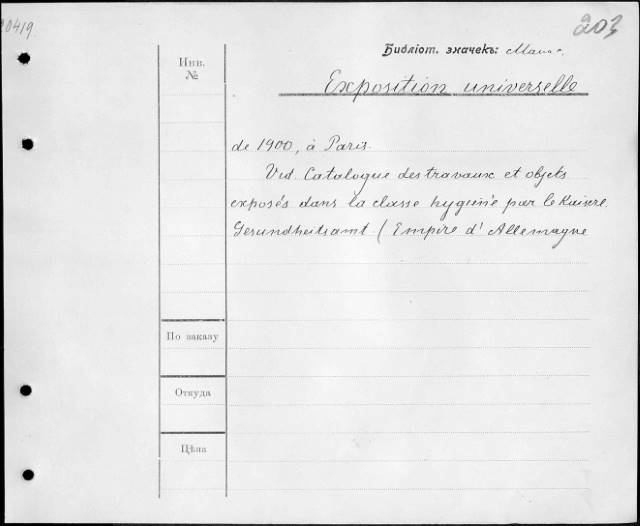 0419
203
Библіот. значекъ:
Инв.
№
Exposition universelle
de 1900, à Paris.
Vid. Catalogue des travaux et objets
exposés dans la classe hygiène par le Kaiserl.
Gesundheitsamt (Empire d'Allemagne
По заказу
Откуда
Цѣна